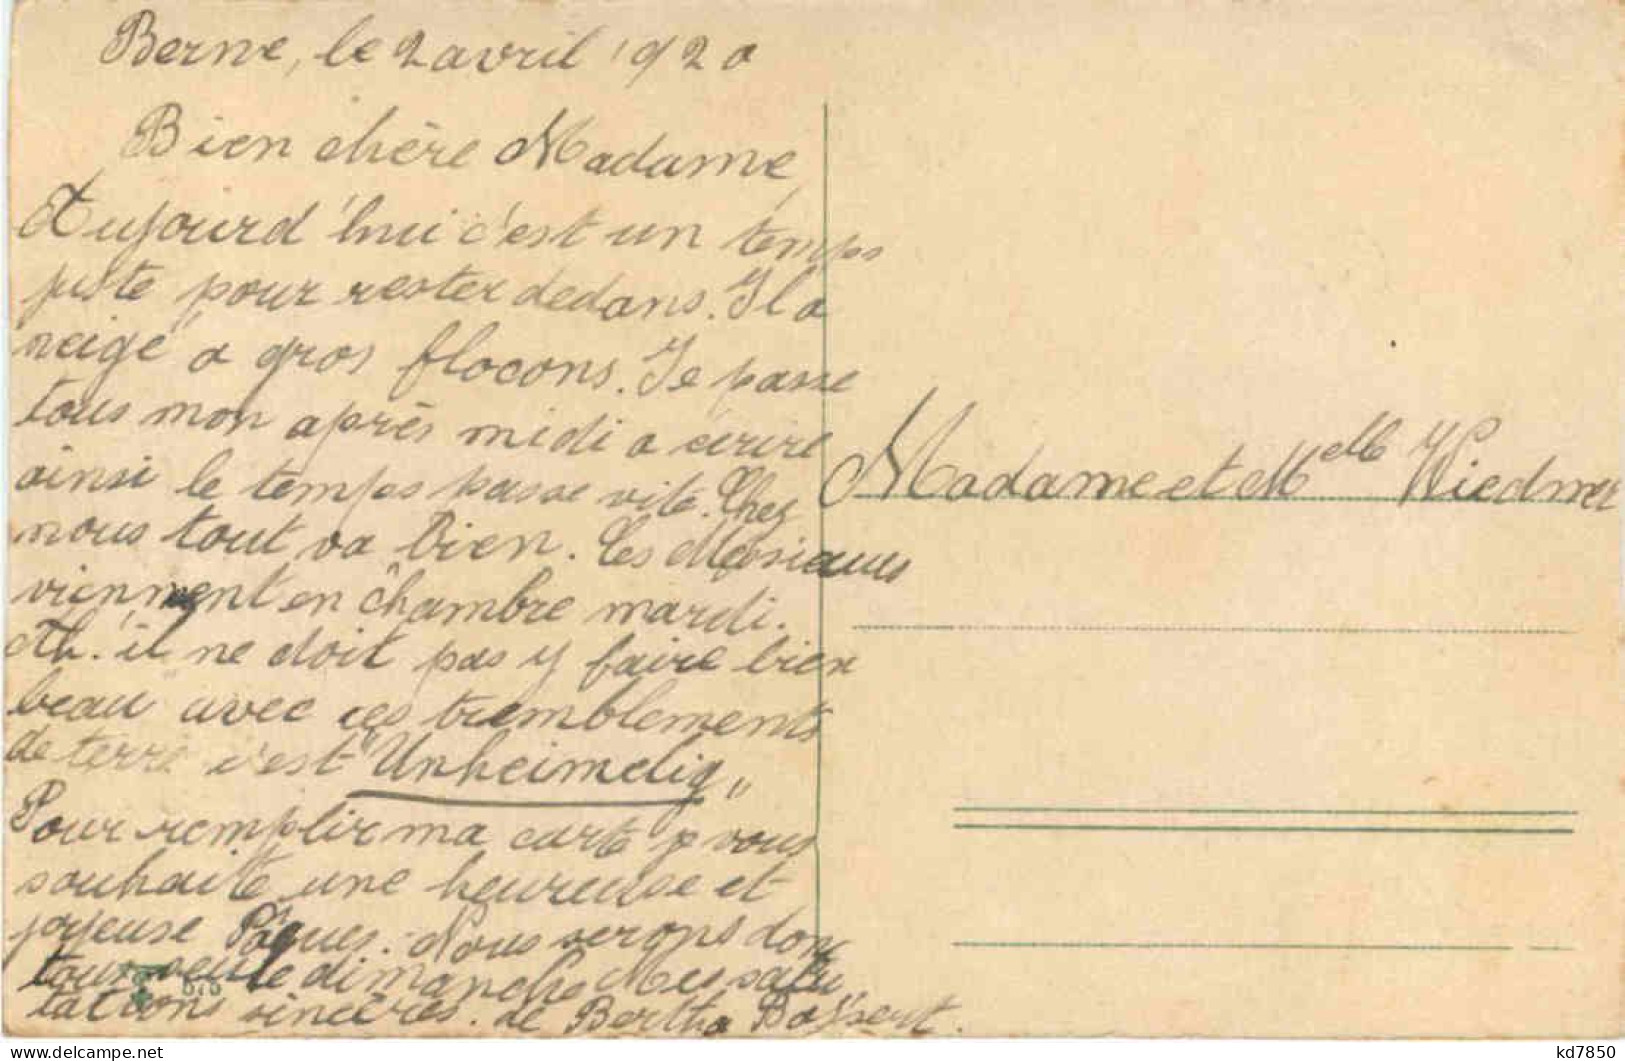 Berne, le 2 avril 1920
Bien chère Madame,
Aujourd'hui c'est un temps
juste pour rester dedans. Il a
neigé a gros flocons. Je passe
tous mon après midi a écrire
ainsi le temps passe vite. Chez
nous tout va bien. Les Messieurs
viennment en chambre mardi.
Ah. il ne doit pas y faire bien
beau avec ces tremblements
de terre c'est "Unheimelig"
Pour remplir ma carte je vous
souhaite une heureuse et
joyeuse Pâques. Nous serons donc
tour seule dimanche Mes salu
tations sincères. de Bertha Bossert.
Madame et Melle Wiedmer
kd7850